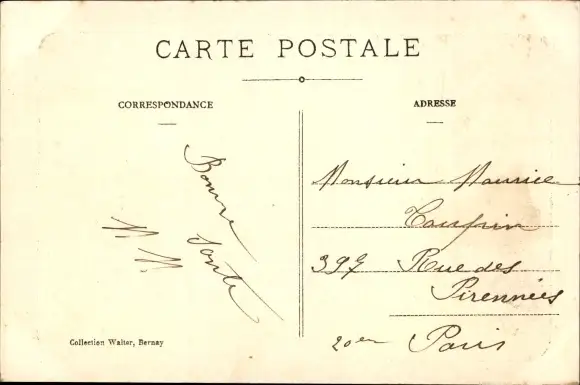 CARTE POSTALE
CORRESPONDANCE
Bonne
Sante
ADRESSE
Monsieur Maurice
397 Rue des
Pirennées
20em Paris
Collection Walter, Bernay